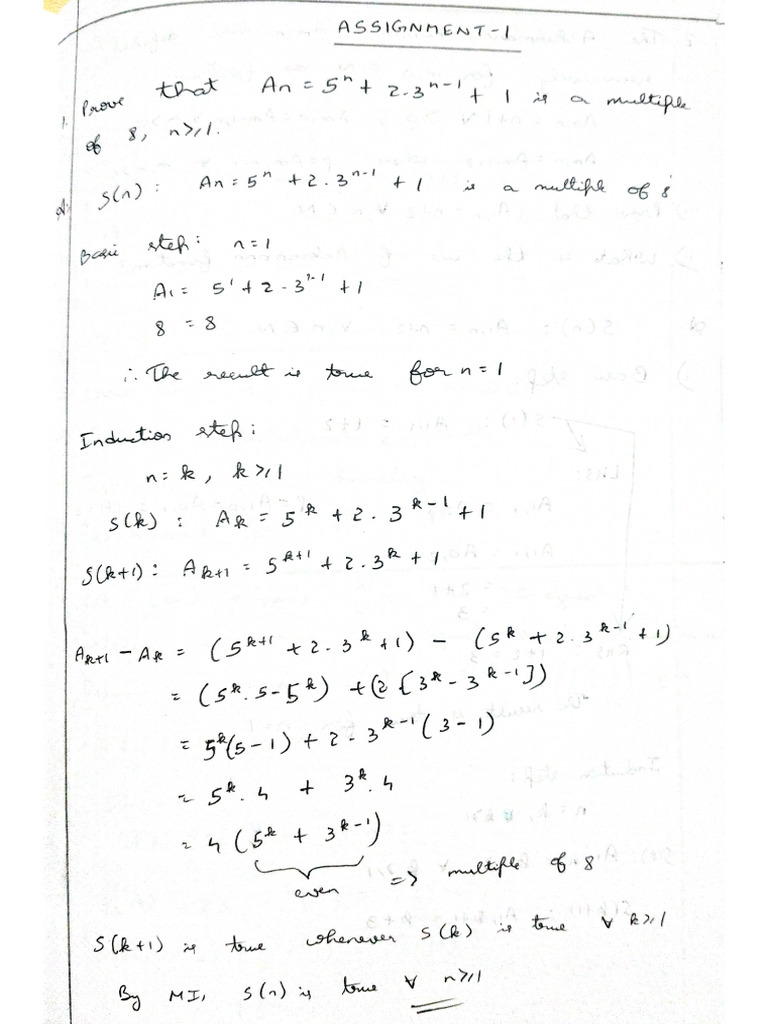 ASSIGNMENT-1
1. Prove that An = 5^n + 2.3^(n-1) + 1 is a multiple
of 8, n≥1.
S(n): An = 5^n + 2.3^(n-1) + 1 is a multiple of 8
Basic step: n=1
A1 = 5^1 + 2-3^(1-1) + 1
8 = 8
∴ The result is true for n=1
Induction step:
n=k, k≥1
S(k): Ak = 5^k + 2.3^(k-1) + 1
S(k+1): Ak+1 = 5^(k+1) + 2.3^k + 1
Ak+1 - Ak = (5^(k+1) + 2.3^k + 1) - (5^k + 2.3^(k-1) + 1)
= (5^k.5 - 5^k) + (2[3^k - 3^(k-1)])
= 5^k(5-1) + 2-3^(k-1)(3-1)
= 5^k.4 + 3^k.4
= 4(5^k + 3^(k-1))
even => multiple of 8
S(k+1) is true whenever S(k) is true ∀ k≥1
By MI, S(n) is true ∀ n≥1